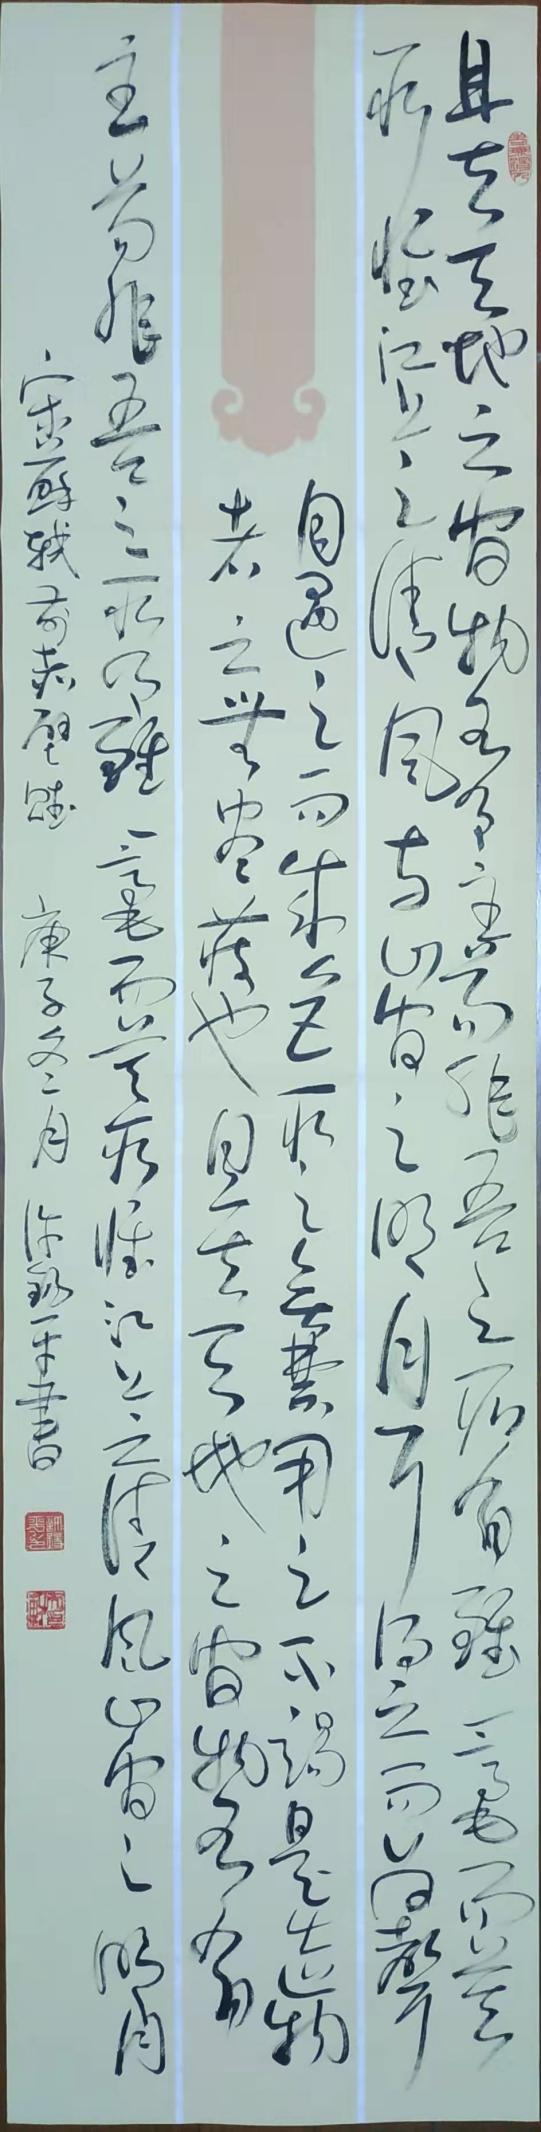 且夫天地之間物各有主苟非吾之所有雖一毫而莫
取惟江上之清風与山間之明月耳得之而為聲
目遇之而成色取之無禁用之不竭是造物
者之無盡藏也且夫天地之間物各有
主苟非吾之所有雖一毫而莫取惟江上之清風山間之明月
宋蘇軾前赤壁賦 庚子冬月 許 平書